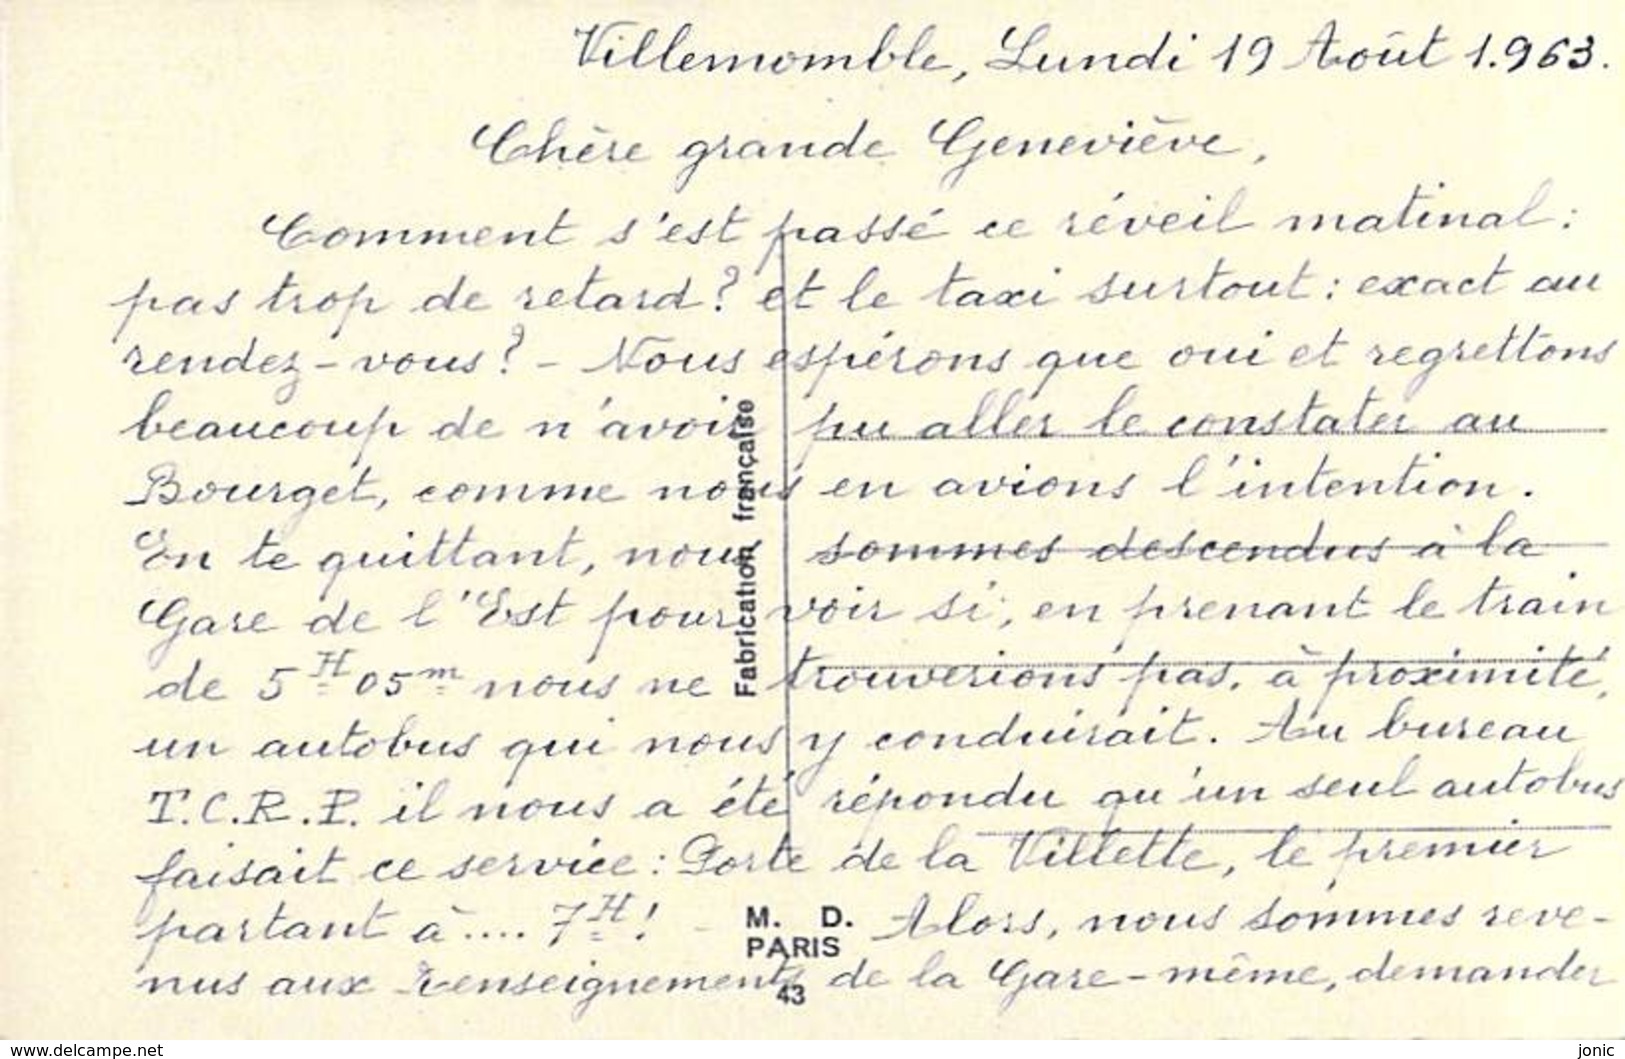 Villemomble, Lundi 19 Août 1.963.
Chère grande Geneviève,
Comment s'est passé ce réveil matinal :
pas trop de retard ? et le taxi surtout : exact au
rendez-vous ? - Nous espérons que oui et regrettons
beaucoup de n'avoir pu aller le constater au
Bourget, comme nous en avions l'intention.
En te quittant, nous sommes descendus à la
Gare de l'Est pour voir si, en prenant le train
de 5H05m nous ne trouverions pas, à proximité,
un autobus qui nous y conduirait. Au bureau
T.C.R.P. il nous a été répondu qu'un seul autobus
faisait ce service : Porte de la Villette, le premier
partant à .... 7H ! - Alors, nous sommes reve-
nus aux renseignements de la Gare-même, demander
Fabrication française
M. D.
PARIS
43
www.delcampe.net
jonic